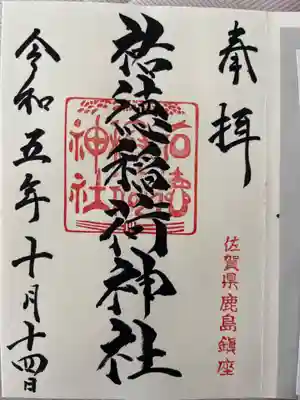 奉拝
佐賀県鹿島鎮座
祐徳稲荷神社
令和五年十月十四日